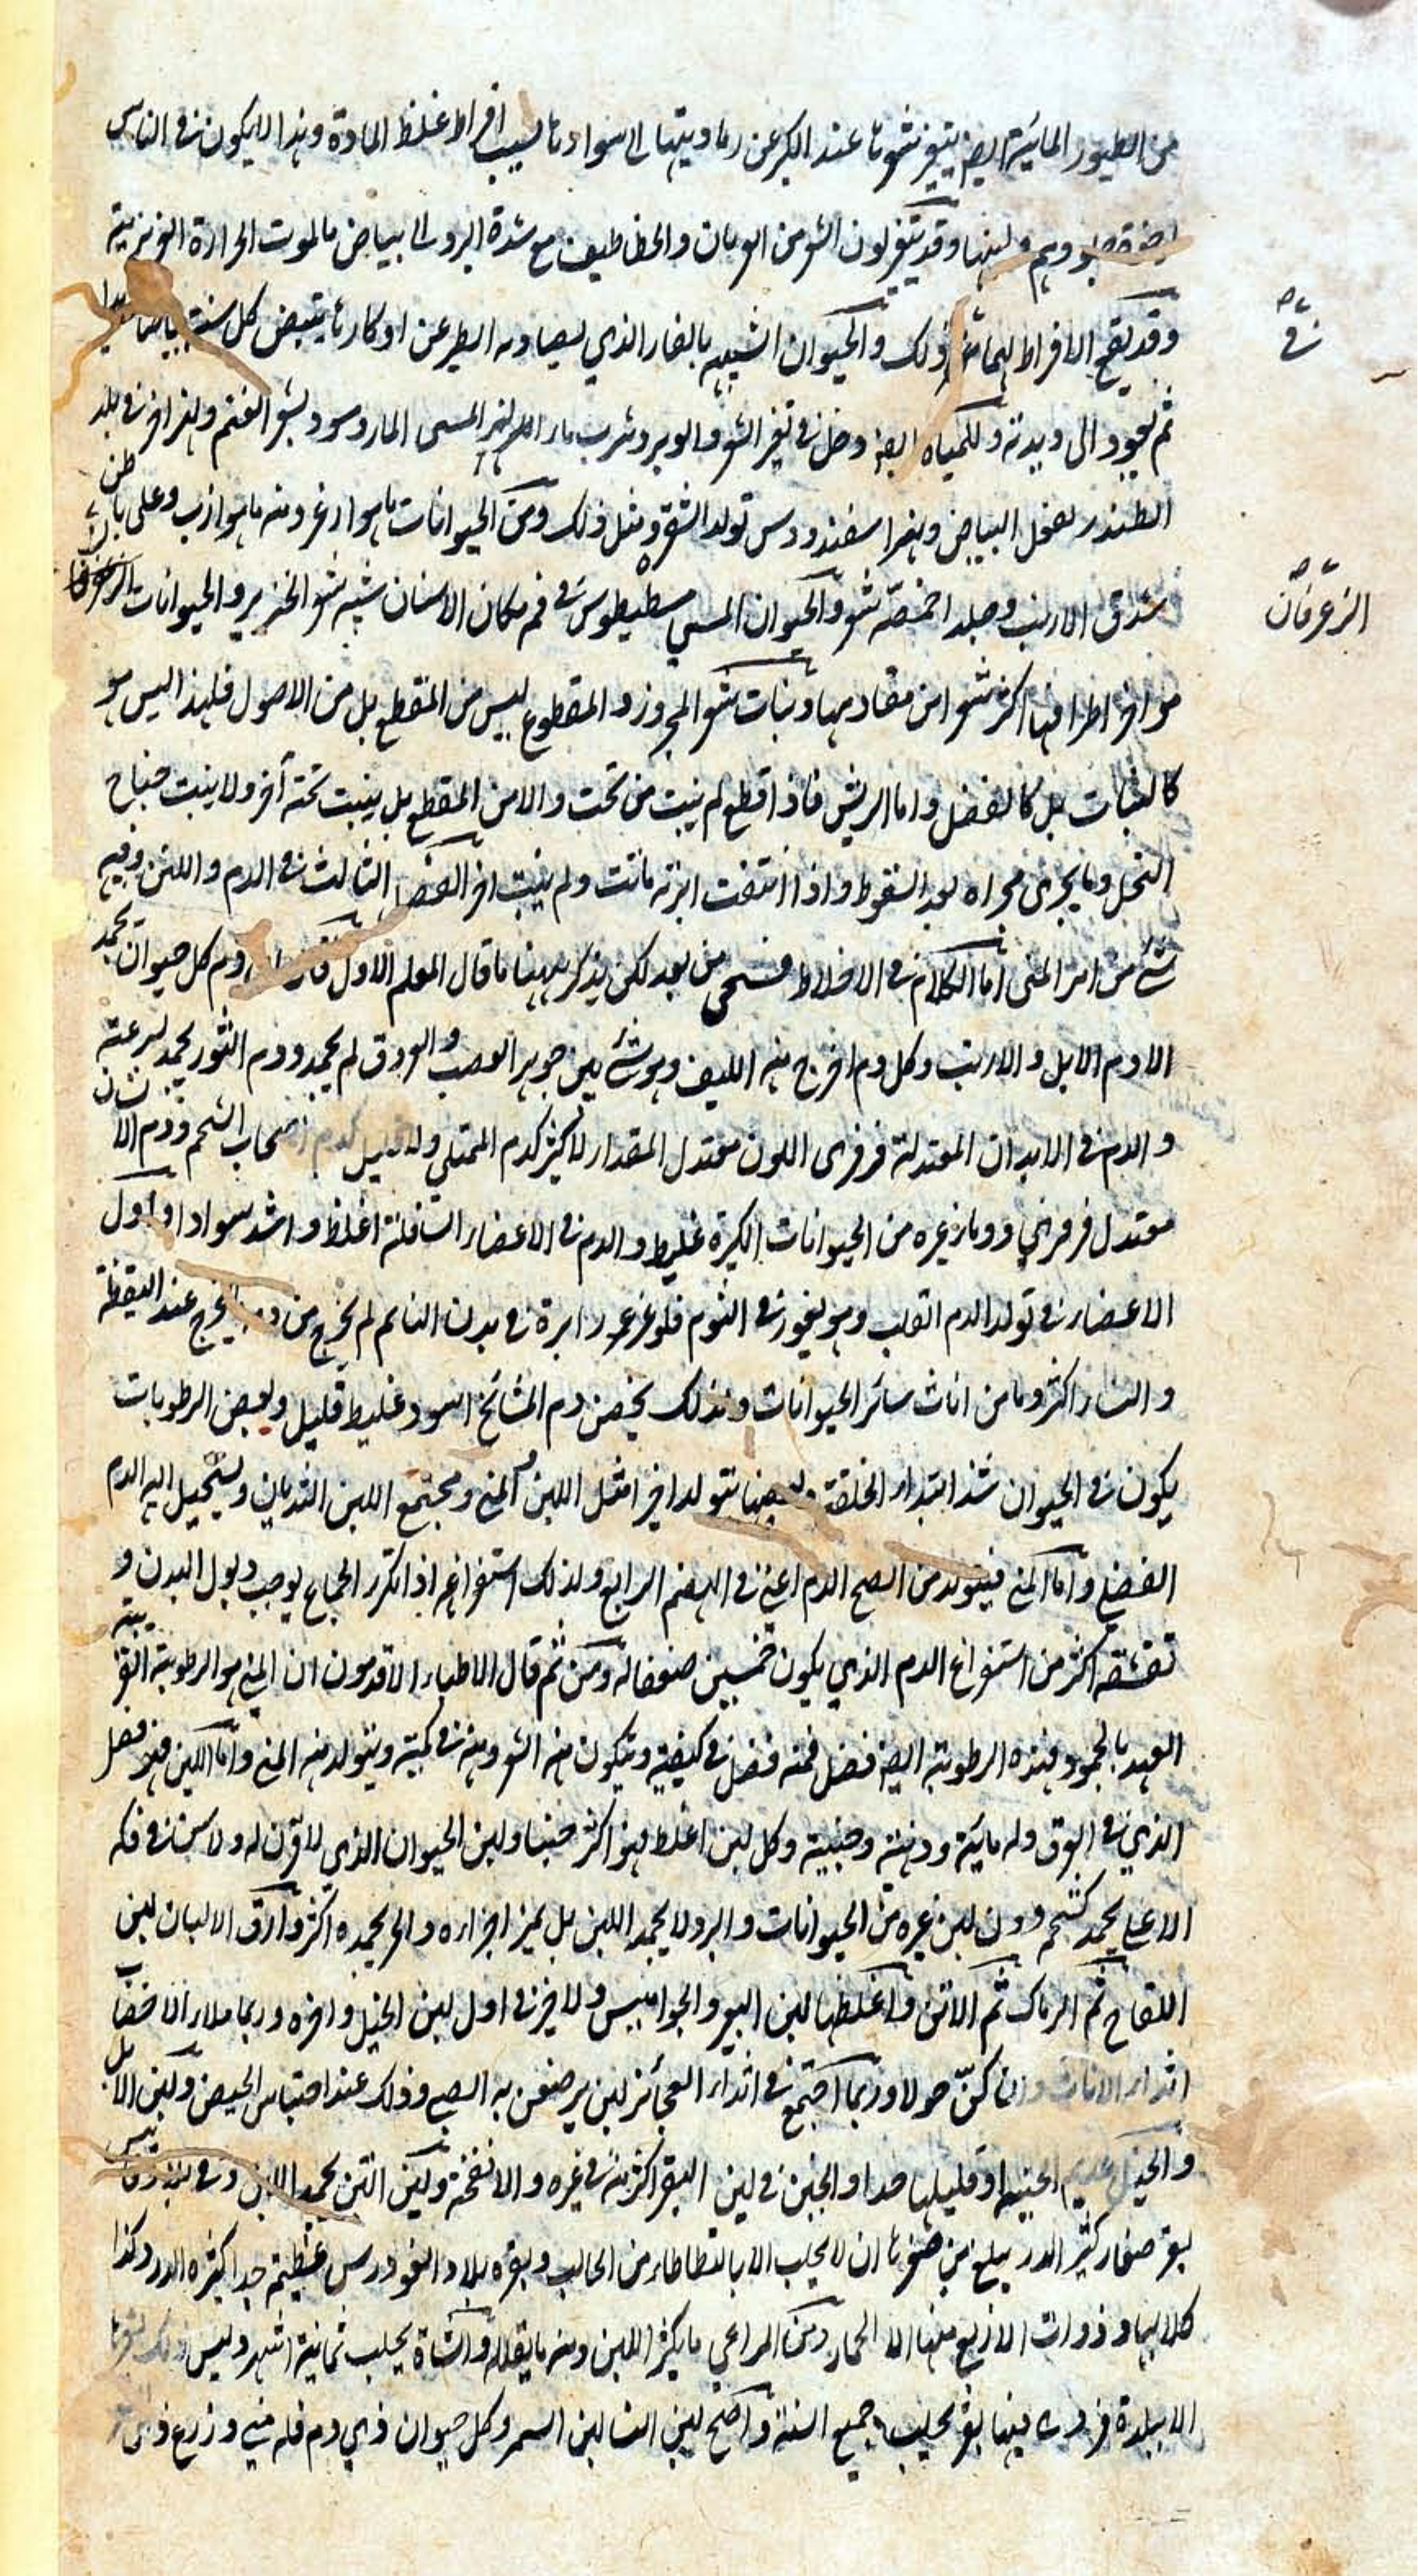 من الطيور المائية ايض يتغير شعرها عند الكبر عن رماديتها الى سوادها بسبب افراط غلظ المادة وهذا لا يكون في الناس
وقد يتغير لون الشعر من العربان والخطاطيف مع شدة البرد الى بياض ما لموت الحرارة الغريزية
وقد يقع الافراط ذلك والحيوان الشبيه بالفار الذي يصاد به الطير عن اوكارها يبيض كل سنة
ثم يعود الى وبدته وللمياه ايضا دخل في تغير الشعر والوبر وشرب ماء النهر المسمى المار وسود يشعر الغنم ونهر اخر في بلد
يفعل البياض ونهر اسفندودس تولد الشقرة ومثل ذلك ومن الحيوانات ما هو ازغر ومنه ما هو ازب وعلى باطن
شدق الارنب وجلد اخمصه شعر والحيوان المسمى مسطيطوس في فم مكان الاسنان شبه شعر الخنزير والحيوانات
مواخر اطرافها اكثر شعرا من مقاديمها ونبات شعر المجزوز والمقطوع ليس من المقطع بل من الاصول فلهذا ليس هو
كالنبات بل كالفضل واما الريش فاذا قطع لم ينبت من تحت ولا من المقطع بل ينبت تحته آخر ولا ينبت جناح
النحل وما يجرى مجراه بعد السقوط واذا انتفت ابرته ماتت ولم ينبت اخر الفصل الثالث في الدم واللبن وفيه
شئ من امر المنى اما الكلام في الاخلاط فسيجى من بعد لكن يذكر ههنا ما قال المعلم الاول ودم كل حيوان يجمد
الا دم الابل والارنب وكل دم اخرج منه الليف وهو شئ بين جوهر العصب والعروق لم يجمد ودم الثور يجمد لسرعته
والدم في الابدان المعتدلة قرفرى اللون معتدل المقدار لا كثير كدم الممتلي ولا قليل كدم اصحاب الشحم ودم الانسان
معتدل فرفري ودماء غيره من الحيوانات الكبيرة غليظ والدم في الاعضاء السافلة اغلظ واشد سوادا واول
الاعضاء في تولد الدم القلب وهو يغور في النوم فلو غرز ابرة في بدن النائم لم يخرج من دمه يخرج عند اليقظة
والنساء اكثر دما من اناث سائر الحيوانات ولذلك يحضن ودم المشائخ اسود غليظ قليل وبعض الرطوبات
يكون في الحيوان منذ ابتداء الخلقة وبعضها يتولد اخيرا مثل اللبن والمني ومجتمع اللبن الثديان ويستحيل اليه الدم
الفضلي واما المني فيتولد من اصح الدم اعني في الهضم الرابع ولذلك استفراغه اذا تكرر الجماع يوجب ذبول البدن و
تقشفه اكثر من استفراغ الدم الذي يكون خمسين ضعفا له ومن ثم قال الاطباء الاقدمون ان المني هو الرطوبة القريبة
العهد بالجمود فهذه الرطوبة ايضا فضل فمنه فضل في كيفيته ويكون منه الشعر ومنه في كميته ويتولد منه المني واما اللبن فهو فضل
الذي في العروق وله مائية ودهنية وجبنية وكل لبن اغلظ فهو اكثر جبنا ولبن الحيوان الذي لا قرن له ولا سن في فكه
الاعلي يجمد كشحم دون لبن غيره من الحيوانات والبرد لا يجمد اللبن بل يميز اجزاءه والحر يجمده اكثر وارق الالبان لبن
اللقاح ثم الرماك ثم الاتن واغلظها لبن البقر والجواميس ولا خير في اول لبن الخيل واخره وربما
اثداء الاناث وان كنّ حولا وربما اجتمع في اثداء العجائز لبن يرضعن به الصبي وذلك عند احتباس الحيض ولبن الابل
والخيل عديم الجبنية او قليلها جدا والجبن في لبن البقر اكثر منه في غيره والانفخة ولبن التين يجمد اللبن وفي
بقر صغار كثير الدر يبلغ من صغرها ان لا يحلب الا بالتطاطاء من الحالب وبقره بلاد عظيم جدا كثيره الدر وكذا
كلابها وذوات الاربع منها الا الحمار ومن المراعي ما يكثر اللبن ومنه ما يقلله والشاة يحلب ثمانية اشهر وليس ذلك
الا ببلدة فيها بقر يحلب جميع السنة واصح لبن النساء لبن السمر وكل حيوان ذي دم فله مني وزرع
في
الزعرفان